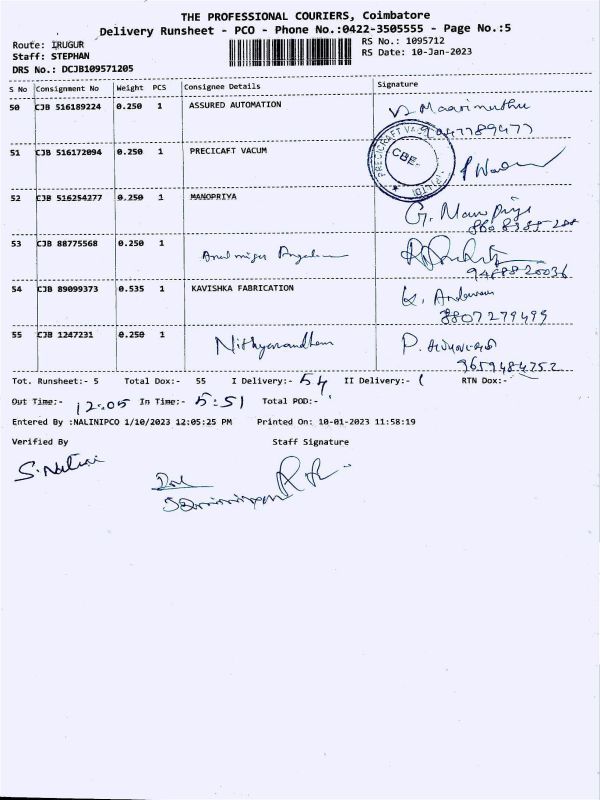 THE PROFESSIONAL COURIERS, Coimbatore
Delivery Runsheet - PCO - Phone No.:0422-3505555 - Page No.:5
Route: IRUGUR
Staff: STEPHAN
DRS No.: DCJB109571205
RS No.: 1095712
RS Date: 10-Jan-2023
S No Consignment No Weight PCS Consignee Details Signature
50 CJB 516189224 0.250 1 ASSURED AUTOMATION V. Maarimuthu
9047789477
51 CJB 516172094 0.250 1 PRECICAFT VACUM
CBE.
52 CJB 516254277 0.250 1 MANOPRIYA G. Manopriya
53 CJB 88775568 0.250 1
54 CJB 89099373 0.535 1 KAVISHKA FABRICATION
8807279499
55 CJB 1247231 0.250 1 Nithyanandham
9659484752
Tot. Runsheet:- 5 Total Dox:- 55 I Delivery:- 54 II Delivery:- 1 RTN Dox:-
Out Time:- 12:05 In Time:- 5:51 Total POD:-
Entered By :NALINIPCO 1/10/2023 12:05:25 PM Printed On: 10-01-2023 11:58:19
Verified By Staff Signature